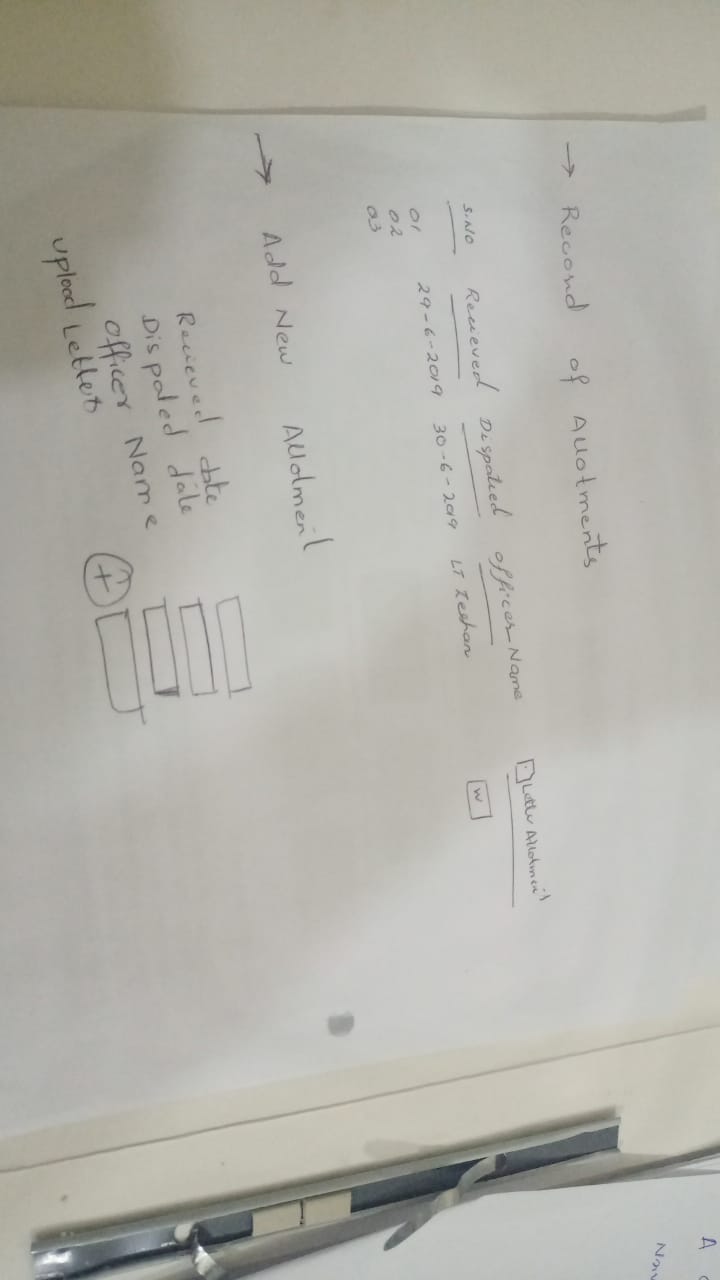 → Record of Allotments
S.NO Recieved Dispatced officer Name Letter Allotment
01 29-6-2019 30-6-2019 LT Zeeshan W
02
03
→ Add New Allotment
Recieved date
Dispated date
Officer Name
Upload Letter +
A